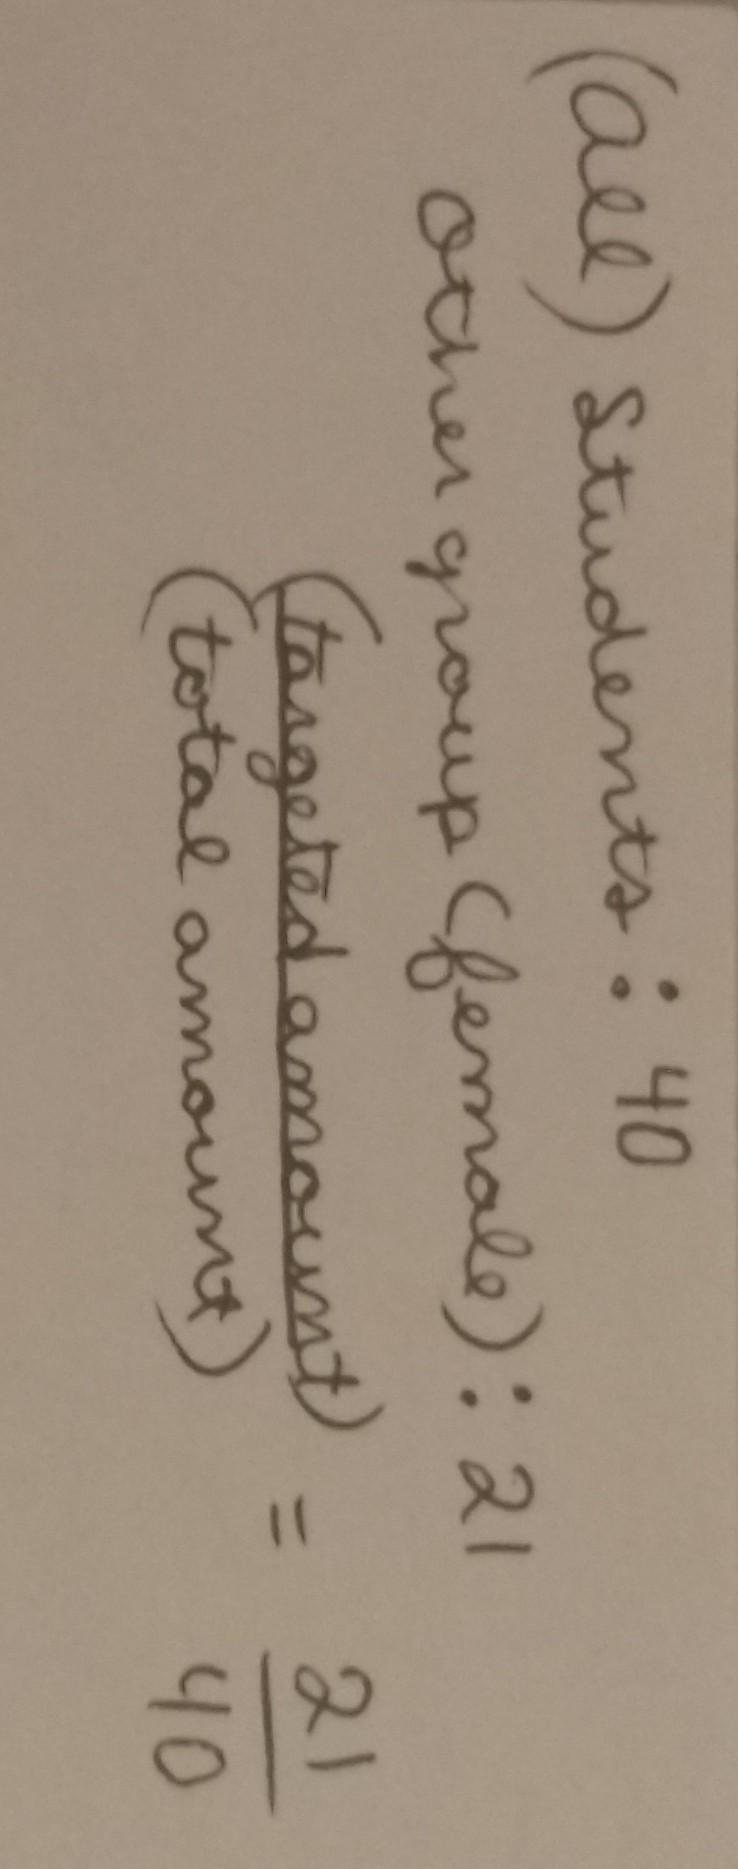 (all) Students : 40
other group (female) : 21
(targeted amount) = 21
(total amount) 40